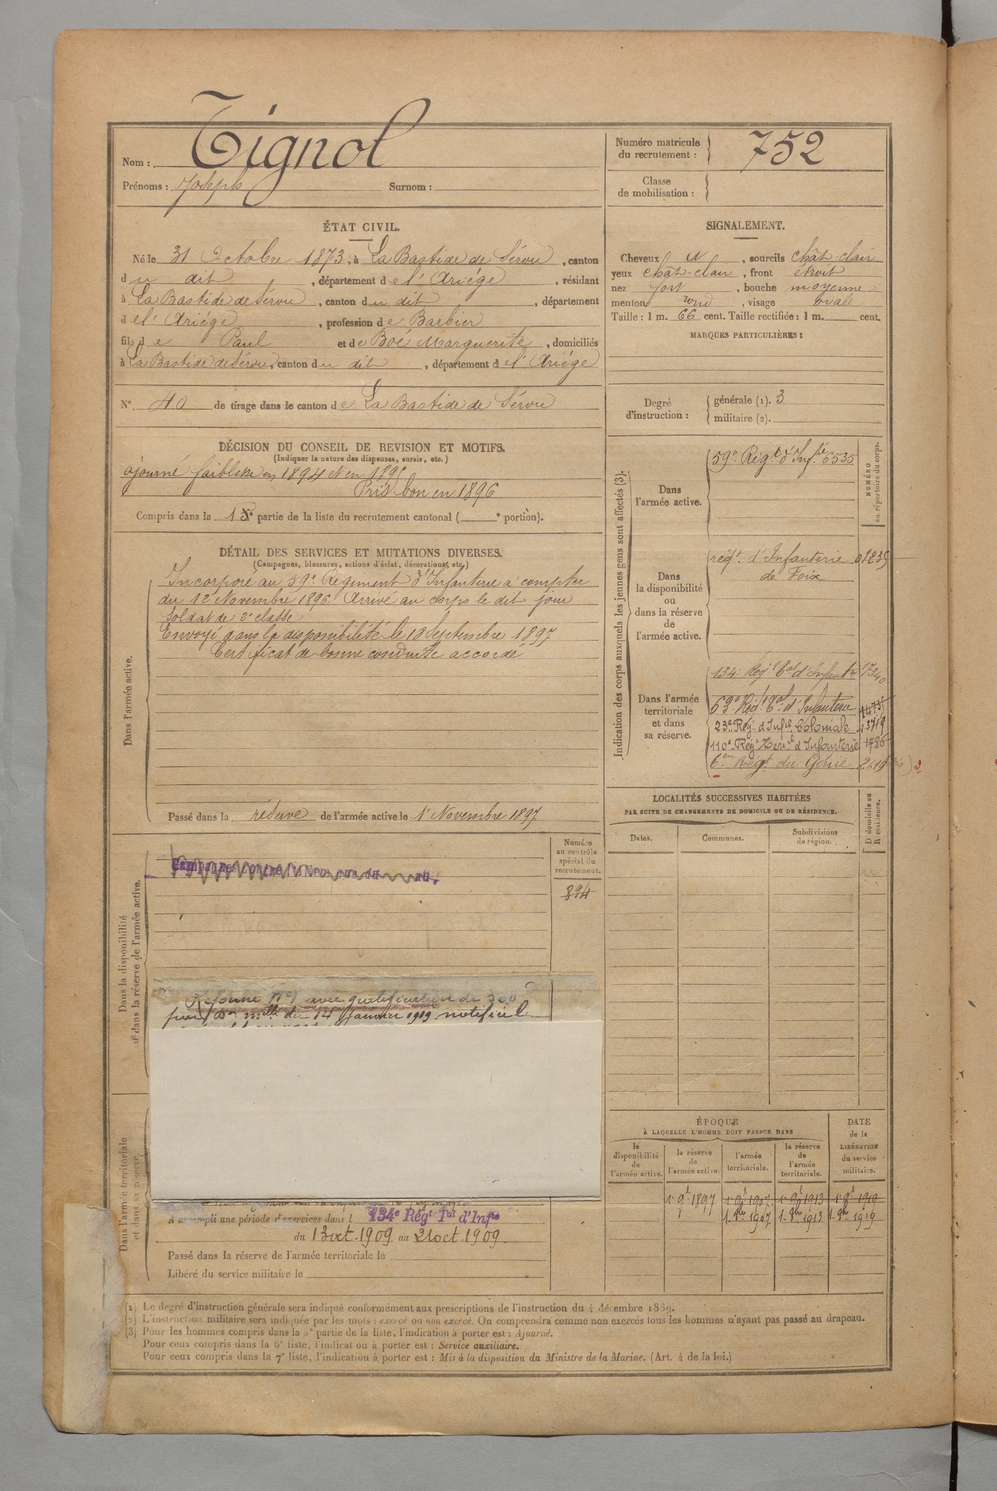 Nom : Tignol
Prénoms : Joseph Surnom :
Numéro matricule du recrutement : 752
Classe de mobilisation :
ÉTAT CIVIL.
Né le 31 Octobre 1873, à La Bastide de Sérou, canton
du dit, département de l'Ariége, résidant
à La Bastide de Sérou, canton du dit, département
de l'Ariége, profession de Barbier
fils de Paul et de Boé Marguerite, domiciliés
à La Bastide de Sérou, canton du dit, département de l'Ariége
N° 40 de tirage dans le canton de La Bastide de Sérou
SIGNALEMENT.
Cheveux et, sourcils chât-clair
yeux chât-clair, front étroit
nez fort, bouche moyenne
menton rond, visage ovale
Taille : 1 m. 66 cent. Taille rectifiée : 1 m. cent.
MARQUES PARTICULIÈRES :
Degré d'instruction : générale (1). 3
militaire (2).
DÉCISION DU CONSEIL DE REVISION ET MOTIFS.
(Indiquer la nature des dispenses, sursis, etc.)
ajourné faiblesse en 1894 et en 1895
Pris bon en 1896
Compris dans la partie de la liste du recrutement cantonal ( e portion).
DÉTAIL DES SERVICES ET MUTATIONS DIVERSES.
(Campagnes, blessures, actions d'éclat, décorations, etc.)
Dans l'armée active.
Incorporé au 59e Régiment d'Infanterie à compter
du 12 Novembre 1896. Arrivé au corps le dit jour
soldat de 2e classe
Envoyé dans la disponibilité le 18 Septembre 1897
Certificat de bonne conduite accordé
Passé dans la réserve de l'armée active le 1er Novembre 1897
Indication des corps auxquels les jeunes gens sont affectés (3).
NUMÉRO au répertoire du corps.
Dans l'armée active.
59e Régt d'Infie 5535
Dans la disponibilité ou dans la réserve de l'armée active.
régt. d'Infanterie de Foix 01835
Dans l'armée territoriale et dans sa réserve.
134 Régt Tal d'Infantie 17340
53e Régt Tal d'Infanterie
23e Rég. d'Infie Coloniale 13719
110e Régt Territ d'Infanterie 1786
6e Régt du Génie
LOCALITÉS SUCCESSIVES HABITÉES
PAR SUITE DE CHANGEMENTS DE DOMICILE OU DE RÉSIDENCE.
Dates. Communes. Subdivisions de région. D domicile ou R résidence.
Dans la disponibilité ou dans la réserve de l'armée active.
Numéro au contrôle spécial du recrutement.
894
Campagne contre l'Allemagne du au
Réforme n° 1 avec gratification de 300
par Don mlle du 14 Janvier 1919 notifié
Dans l'armée territoriale et dans sa réserve.
A accompli une période d'exercices dans l 134e Régt Tal d'Infie
du 13 oct. 1909 au 21 oct. 1909.
Passé dans la réserve de l'armée territoriale le
Libéré du service militaire le
ÉPOQUE
À LAQUELLE L'HOMME DOIT PASSER DANS
la disponibilité de l'armée active.
la réserve de l'armée active.
l'armée territoriale.
la réserve de l'armée territoriale.
DATE de la LIBÉRATION du service militaire.
1er 9bre 1897 1er 9bre 1907 1er 9bre 1913 1er 9bre 1919
1. 8bre 1907 1. 8bre 1913 1. 8bre 1919
(1) Le degré d'instruction générale sera indiqué conformément aux prescriptions de l'instruction du 4 décembre 1889.
(2) L'instruction militaire sera indiquée par les mots : exercé ou non exercé. On comprendra comme non exercés tous les hommes n'ayant pas passé au drapeau.
(3) Pour les hommes compris dans la 5e partie de la liste, l'indication à porter est : Ajourné.
Pour ceux compris dans la 6e liste, l'indication à porter est : Service auxiliaire.
Pour ceux compris dans la 7e liste, l'indication à porter est : Mis à la disposition du Ministre de la Marine. (Art. 4 de la loi.)